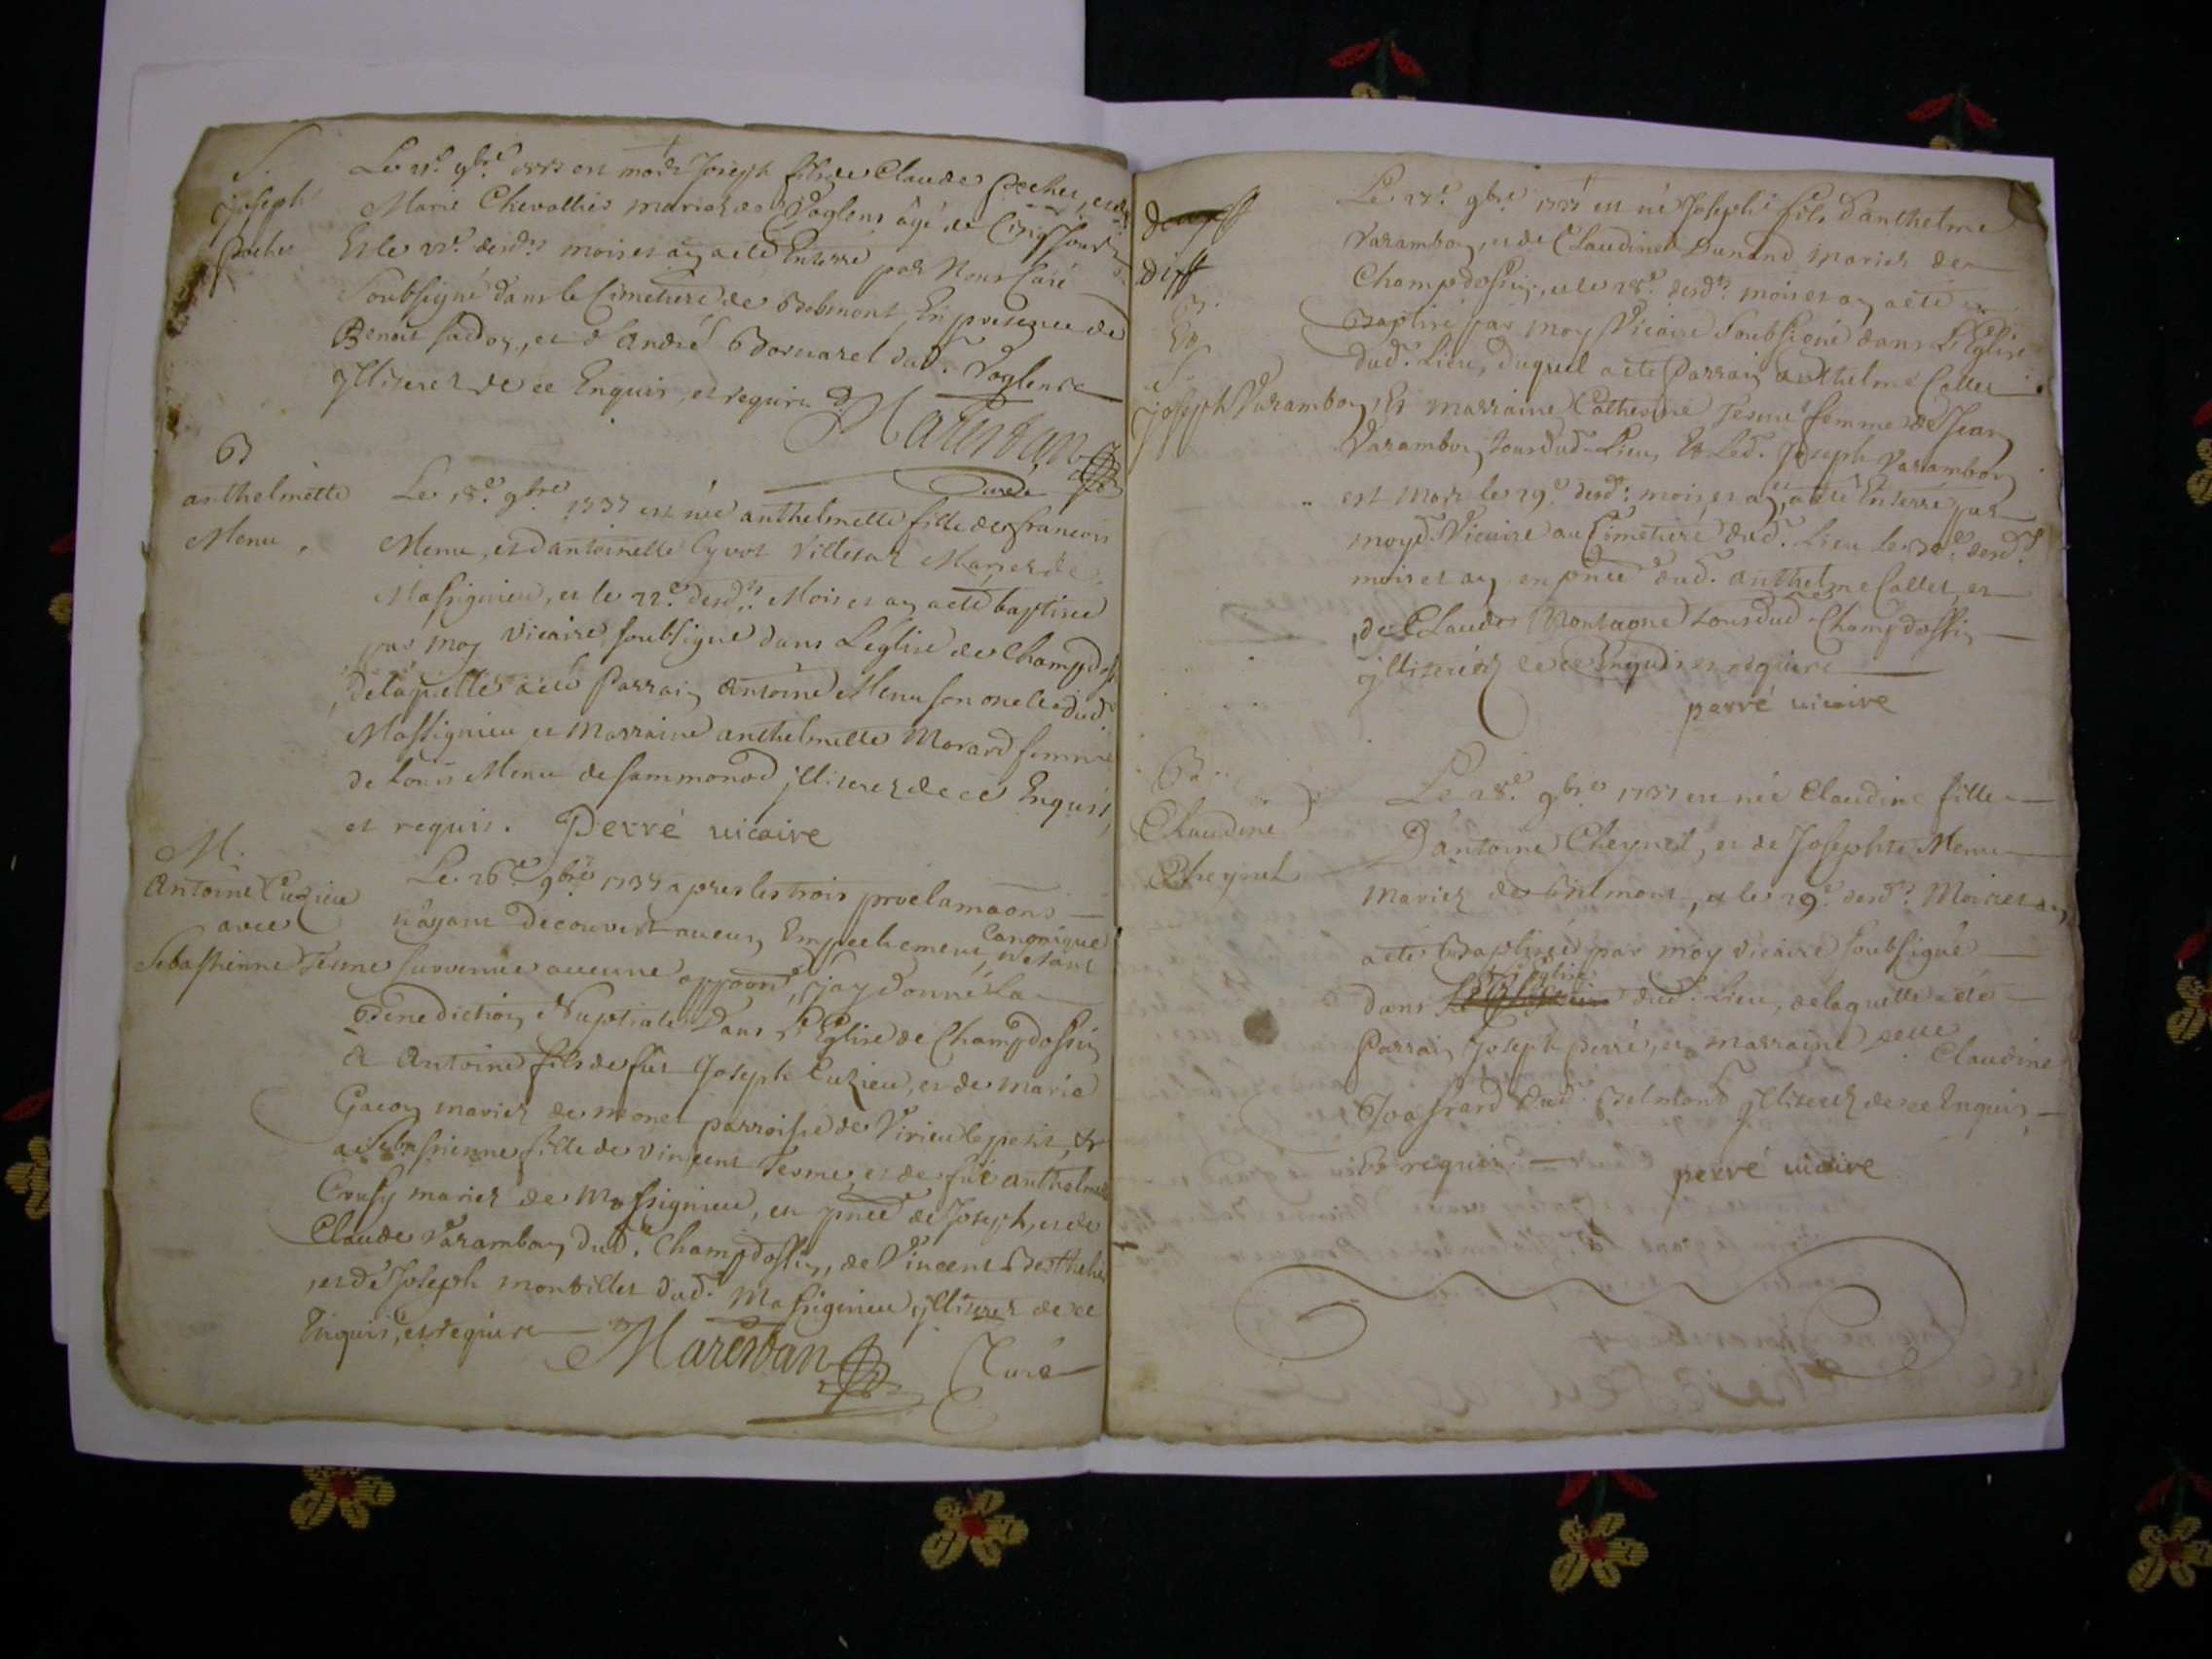 S.
Joseph
Pochet
Le 21e 9bre 1737 est mort Joseph fils de Claude Pochet, et de
Marie Chevallier mariez de Voglens âgé de Cinq Jours
Et le 22e desds mois et an a eté Enterré par Nous Curé
Soubsigné dans le Cimetiere de Belmont, En presence de
Benoit et d'André Bornarel dud. Voglens
jlliterez de ce Enquis, et requis
Marestan
Curé
B
anthelmette
Menu.
Le 18e 9bre 1737 est née anthelmette fille de francois
Menu, et d'antoinette Cyvot Villetar Mariez de
Massignieu, et le 22e desds Mois et an a eté baptisée
par moy vicaire soubsigné dans L'eglise de Champdossin
delaquelle a eté Parrain Antoine Menu son oncle dud
Massignieu et Marraine anthelmette Morard femme
de Louis Menu de sammonod jlliterez de ce Enquis,
et requis. Perré vicaire
M.
Antoine Cuzieu
avec
Sebastienne Terme
Le 26e 9bre 1737 apres les trois proclamaons
n'ayant decouvert aucun Empechement Canonique n'etant
survenue aucune oppoon, j'ay donné La
Benediction Nuptiale Dans L'Eglise de Champdossin
A Antoine fils de fût Joseph Cuzieu, et de marie
Gacon mariez de monet parroisse de Virieu le petit, &
a Sebastienne fille de vincent Terme, et de fûe anthelme
Crussy mariez de Massignieu, en pnce de Joseph, et de
Claude Varambon dud. Champdossin, de Vincent Berthelier
et de Joseph montillet dud. Massignieu jlliterez de ce
Enquis, et requis
Marestan Curé
B.
Et
S.
Joseph Varambon
Le 27e 9bre 1737 est né Joseph fils d'anthelme
Varambon, et de Claudine Dunand mariez de
Champdossin, et le 28e desds mois et an a eté
Baptisé par moy Vicaire Soubsigné dans L'Eglise
dud. Lieu, duquel a eté Parrain anthelme Collet
Et marraine Catherine Terme femme de Jean
Varambon tous dud. Lieu, Et Led. Joseph Varambon
est mort le 29e desd. mois, et an, et a eté Enterré par
moyd. Vicaire au Cimetiere dud. Lieu Le 30e desds
mois et an en pnce dud. anthelme Collet, et
de Claude Montagne tous dud. Champdossin
jlliterez de ce Enquis et requis
perré vicaire
B.
Claudine
Cheynet
Le 28e 9bre 1737 est née Claudine fille
D'antoine Cheynet, et de Josephte Menu
mariez de Belmont, et le 29e desds Mois et an
a eté Baptisée par moy vicaire soubsigné
dans L'eglise dud. Lieu, de laquelle a eté
Parrain Joseph perré, et marraine Claudine
dud. Belmond jlliterez de ce Enquis,
Et requis
perré vicaire